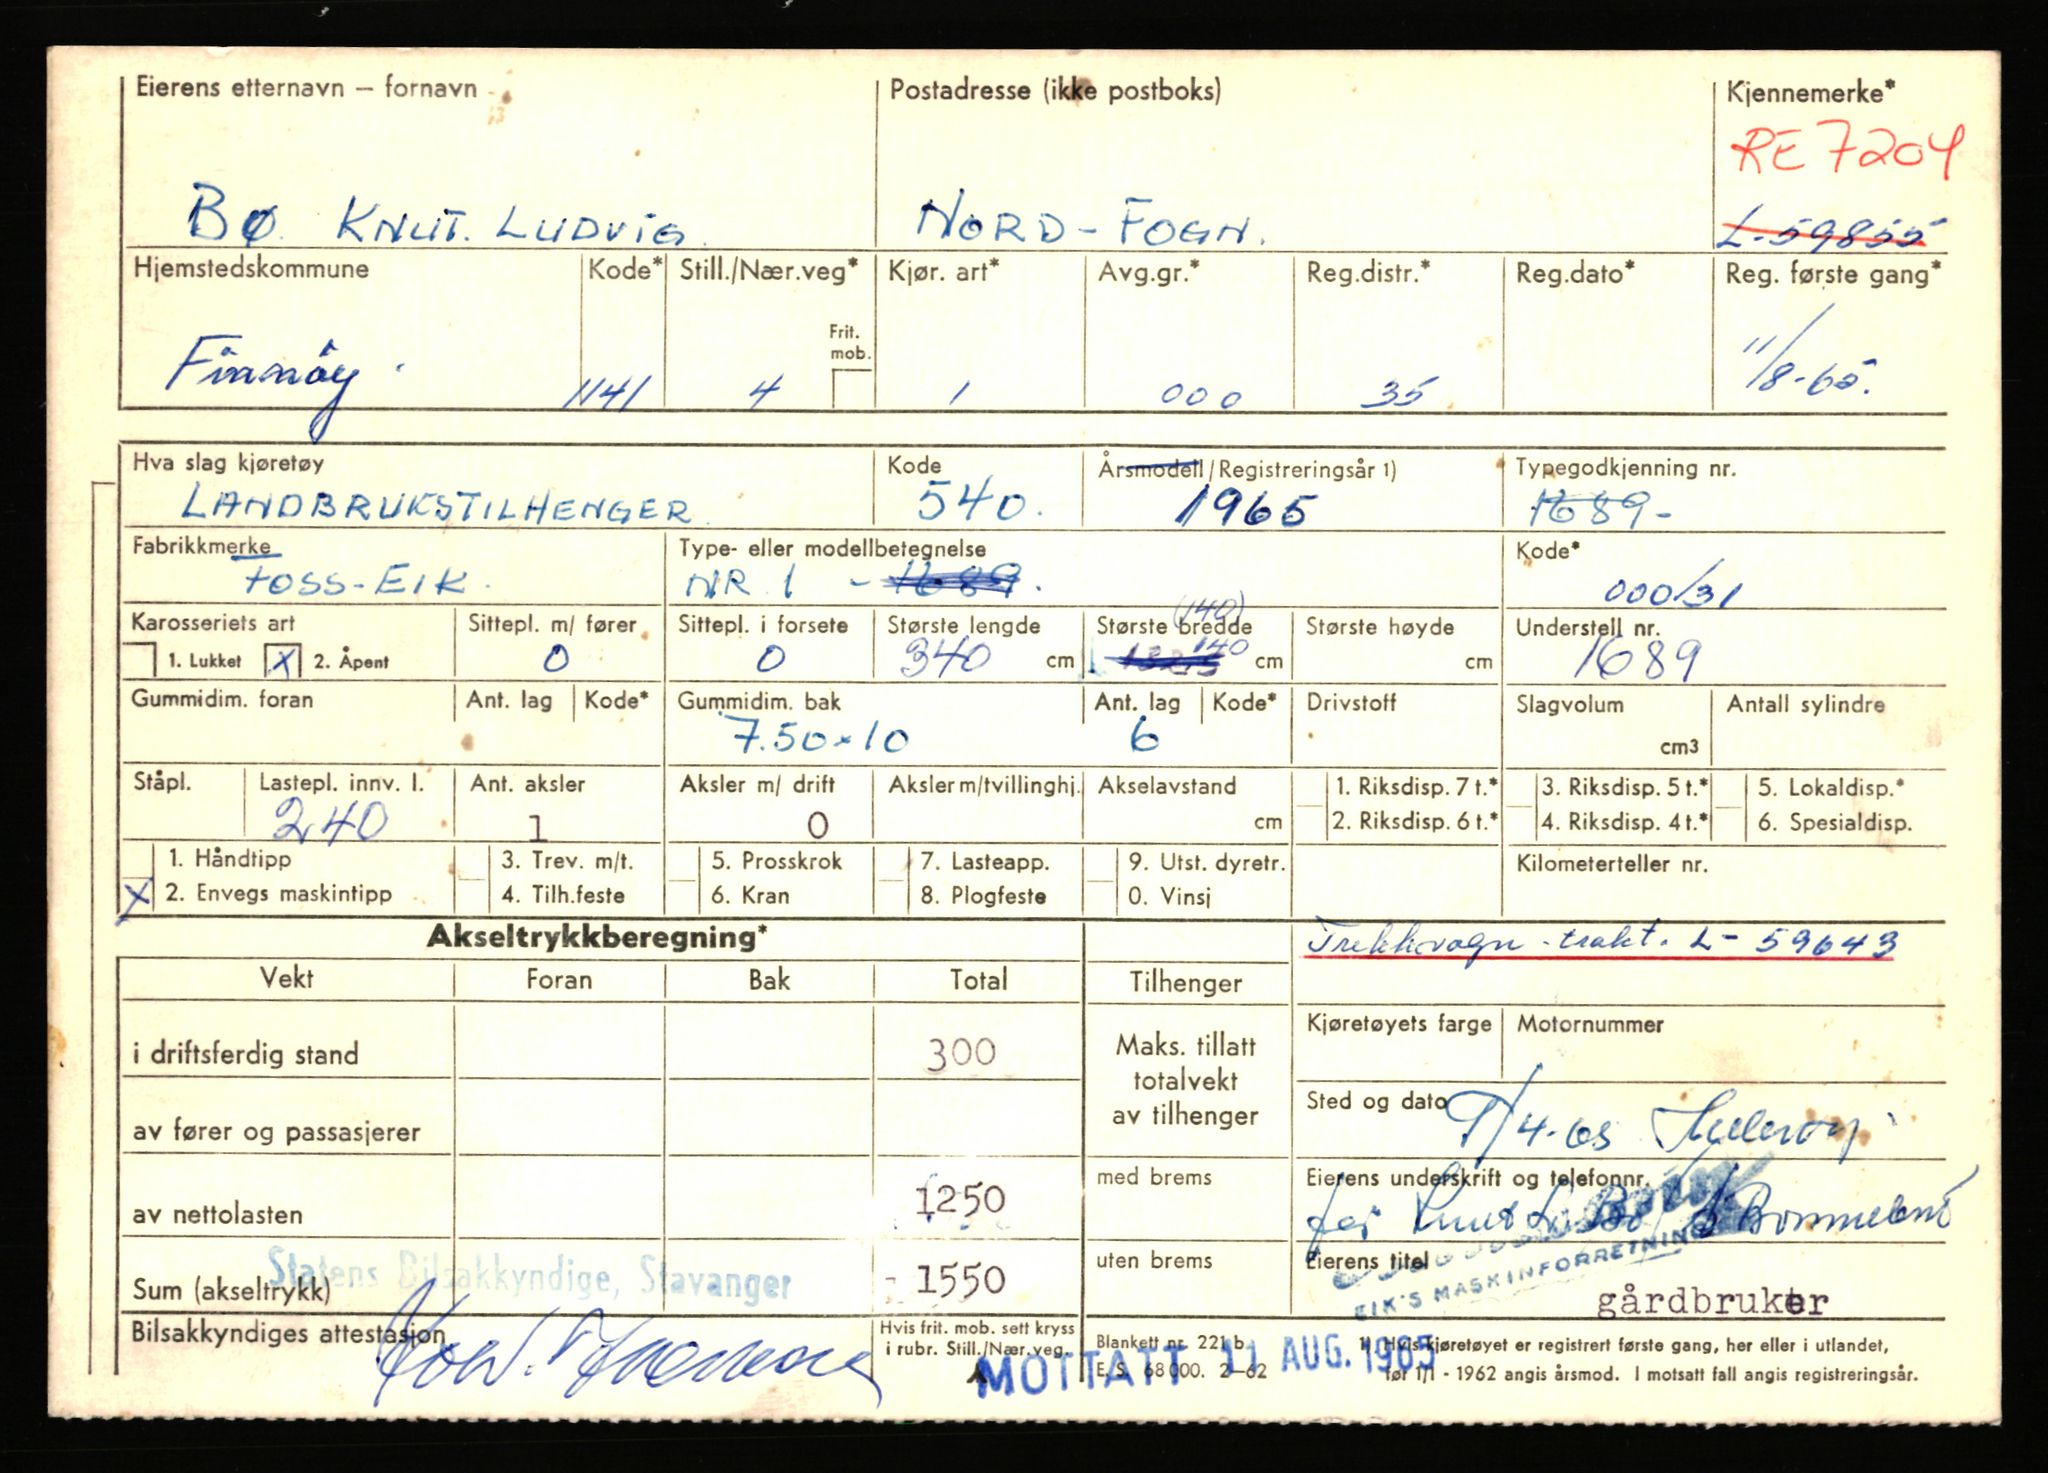 Eierens etternavn – fornavn Postadresse (ikke postboks) Kjennemerke*
RE 7204
BØ. KNUT. LUDVIG. NORD-FOGN. L-59855
Hjemstedskommune Kode* Still./Nær.veg* Kjør. art* Avg.gr.* Reg.distr.* Reg.dato* Reg. første gang*
Frit. mob.
Finnøy. 1141 4 1 000 35 11/8-65.
Hva slag kjøretøy Kode Årsmodell/Registreringsår 1) Typegodkjenning nr.
LANDBRUKSTILHENGER 540. 1965 1689-
Fabrikkmerke Type- eller modellbetegnelse Kode*
FOSS-EIK. NR 1 - 1689. 000/31
Karosseriets art Sittepl. m/ fører Sittepl. i forsete Største lengde Største bredde (140) Største høyde Understell nr.
1. Lukket X 2. Åpent 0 0 340 cm 140 cm cm 1689
Gummidim. foran Ant. lag Kode* Gummidim. bak Ant. lag Kode* Drivstoff Slagvolum Antall sylindre
7.50x10 6 cm3
Ståpl. Lastepl. innv. l. Ant. aksler Aksler m/ drift Aksler m/tvillinghj. Akselavstand 1. Riksdisp. 7 t.* 3. Riksdisp. 5 t.* 5. Lokaldisp.*
240 1 0 cm 2. Riksdisp. 6 t.* 4. Riksdisp. 4 t.* 6. Spesialdisp.
1. Håndtipp 3. Trev. m/t. 5. Prosskrok 7. Lasteapp. 9. Utst. dyretr. Kilometerteller nr.
X 2. Envegs maskintipp 4. Tilh.feste 6. Kran 8. Plogfeste 0. Vinsj
Akseltrykkberegning* Trekkvogn - trakt. L- 59643
Vekt Foran Bak Total Tilhenger
Kjøretøyets farge Motornummer
i driftsferdig stand 300 Maks. tillatt
totalvekt
av tilhenger
Sted og dato /4-65
av fører og passasjerer
med brems Eierens underskrift og telefonnr.
av nettolasten 1250 for Knut L. Bø
uten brems Eierens titel
EIK'S MASKINFORRETNING
Statens Bilsakkyndige, Stavanger
Sum (akseltrykk) 1550 gårdbruker
Bilsakkyndiges attestasjon Hvis frit. mob. sett kryss i rubr. Still./Nær.veg. Blankett nr. 221 b. 1) Hvis kjøretøyet er registrert første gang, her eller i utlandet,
MOTTATT 11 AUG. 1965
E. S. 68 000. 2–62 før 1/1 - 1962 angis årsmod. I motsatt fall angis registreringsår.